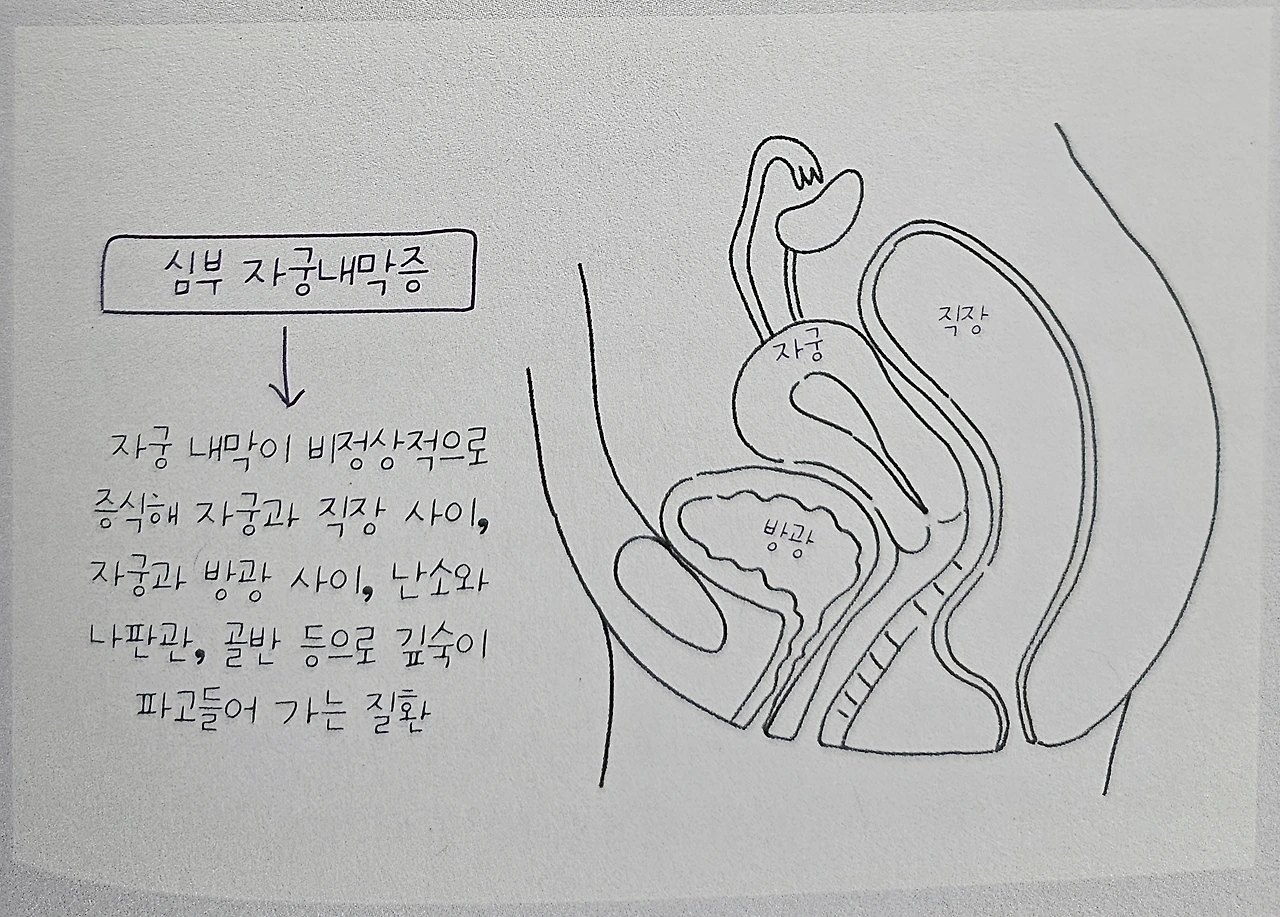 심부 자궁내막증
자궁 내막이 비정상적으로
증식해 자궁과 직장 사이,
자궁과 방광 사이, 난소와
나판관, 골반 등으로 깊숙이
파고들어 가는 질환
직장
자궁
방광